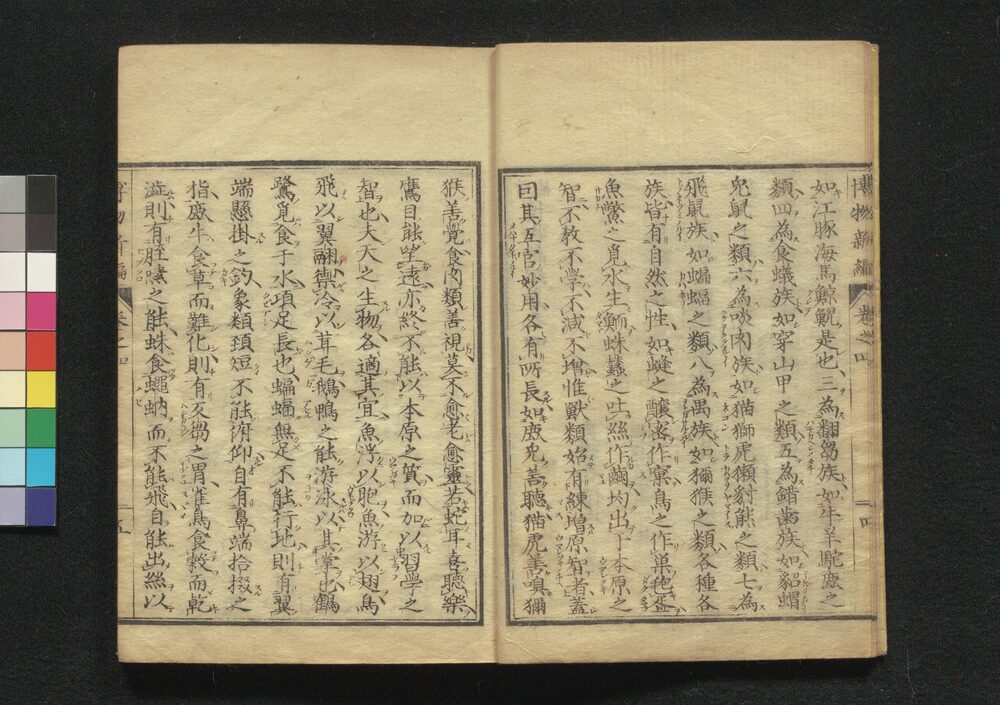 博物新編 卷之四 一四
如江豚海馬鯨鯢是也三為翻芻族如牛羊駝鹿之
類四為食蟻族如穿山甲之類五為錯齒族如貂蝟
兔鼠之類六為啖肉族如猫獅虎獺豺熊之類七為
飛鼠族如蝙蝠之類八為禺族如獼猴之類各種各
族皆有自然之性如蜂之釀蜜作窠鳥之作巢毓蛋
魚鱉之覓水生鰤蛛蠶之吐絲作繭均出于本原之
智不教不學不減不增惟獸類始有練增原智者蓋
因其五官妙用各有所長如鹿兔善聽猫虎善嗅獼
猴善覺食肉類善視莫不愈老愈靈若蛇耳喜聽樂
鷹目能望遠亦終不能以本原之質而加以習學之
智也夫天之生物各適其宜魚浮以胞魚游以翅鳥
飛以翼翮禦冷以茸毛鵝鴨之能游泳以其掌也鶴
鷺覓食于水項足長也蝙蝠無足不能行地則有翼
端懸掛之鈎象類頚短不能俯仰自有鼻端拾掇之
指鹿牛食草而難化則有反芻之胃雀鳥食穀而乾
澁則有脬嗉之能蛛食蠅蚋而不能飛自能出絲以
博物新編 卷之四 一五